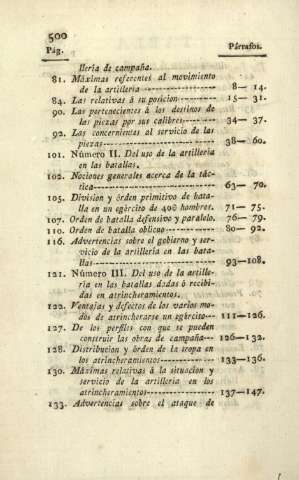 500
Pág. Párrafos.
llería de campaña.
81. Máximas referentes al movimiento
de la artilleria ---------------- 8— 14.
84. Las relativas á su posicion-------- 15— 31.
90. Las pertenecientes á los destinos de
las piezas por sus calibres-------- 34— 37.
92. Las concernientes al servicio de las
piezas------------------------ 38— 60.
101. Número II. Del uso de la artilleria
en las batallas.
102. Nociones generales acerca de la tác-
tica-------------------------- 63— 70.
105. Division y órden primitivo de bata-
lla en un egército de 40☉ hombres. 71— 75.
107. Orden de batalla defensivo y paralelo. 76— 79.
110. Orden de batalla oblicuo----------- 80— 92.
116. Advertencias sobre el gobierno y ser-
vicio de la artilleria en las bata-
llas-------------------------- 93—108.
121. Número III. Del uso de la artille-
ria en las batallas dadas ó recibi-
das en atrincheramientos.
122. Ventajas y defectos de los varios mo-
dos de atrincherarse un egército--- 111—126.
127. De los perfiles con que se pueden
construir las obras de campaña--- 126—132.
128. Distribucion y órden de la tropa en
los atrincheramientos------------ 133—136.
130. Máximas relativas á la situacion y
servicio de la artilleria en los
atrincheramientos--------------- 137—147.
133. Advertencias sobre el ataque de